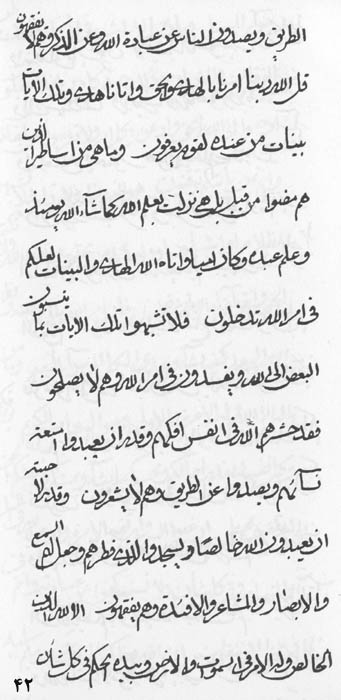 الطريق ويصدون الناس عن عبادة الله وعن الذكر وهم لا يفقهون
قل الله ربنا امرنا بالهدى والحق واتانا هدى وتلك الآيات
بينات من عنده لقوم يعرفون وما هي من اساطير الذين
هم مضوا من قبل بل هي نزلت بعلم الله كما شاء الله
وعلم عبده وكان اميا واتاه الله الهدى والبينات لعلكم
في امر الله تدخلون فلا تشبهوا تلك الايات بما ينسبون
البعض الى الله ويفسدون في امر الله وهم لا يصلحون
فقد حشرهم الله في انفس افكهم وقد ان يعبدوا
ويصدوا عن الطريق وهم لا يشعرون وقد
ان يعبدون الله خالصا ويسجدوا للذي فطرهم وجعل لهم السمع
والابصار والمشاعر والافئدة وهم يفقهون الا لله الدين
الخالص وله الامر في السموات والارض وبيده الحكم في كل شأن
۴۲